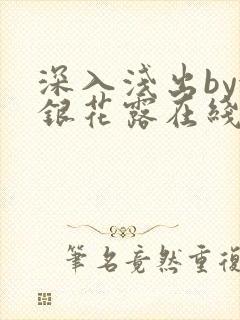 深入浅出by
銀花露在綫
筆名竟然重復